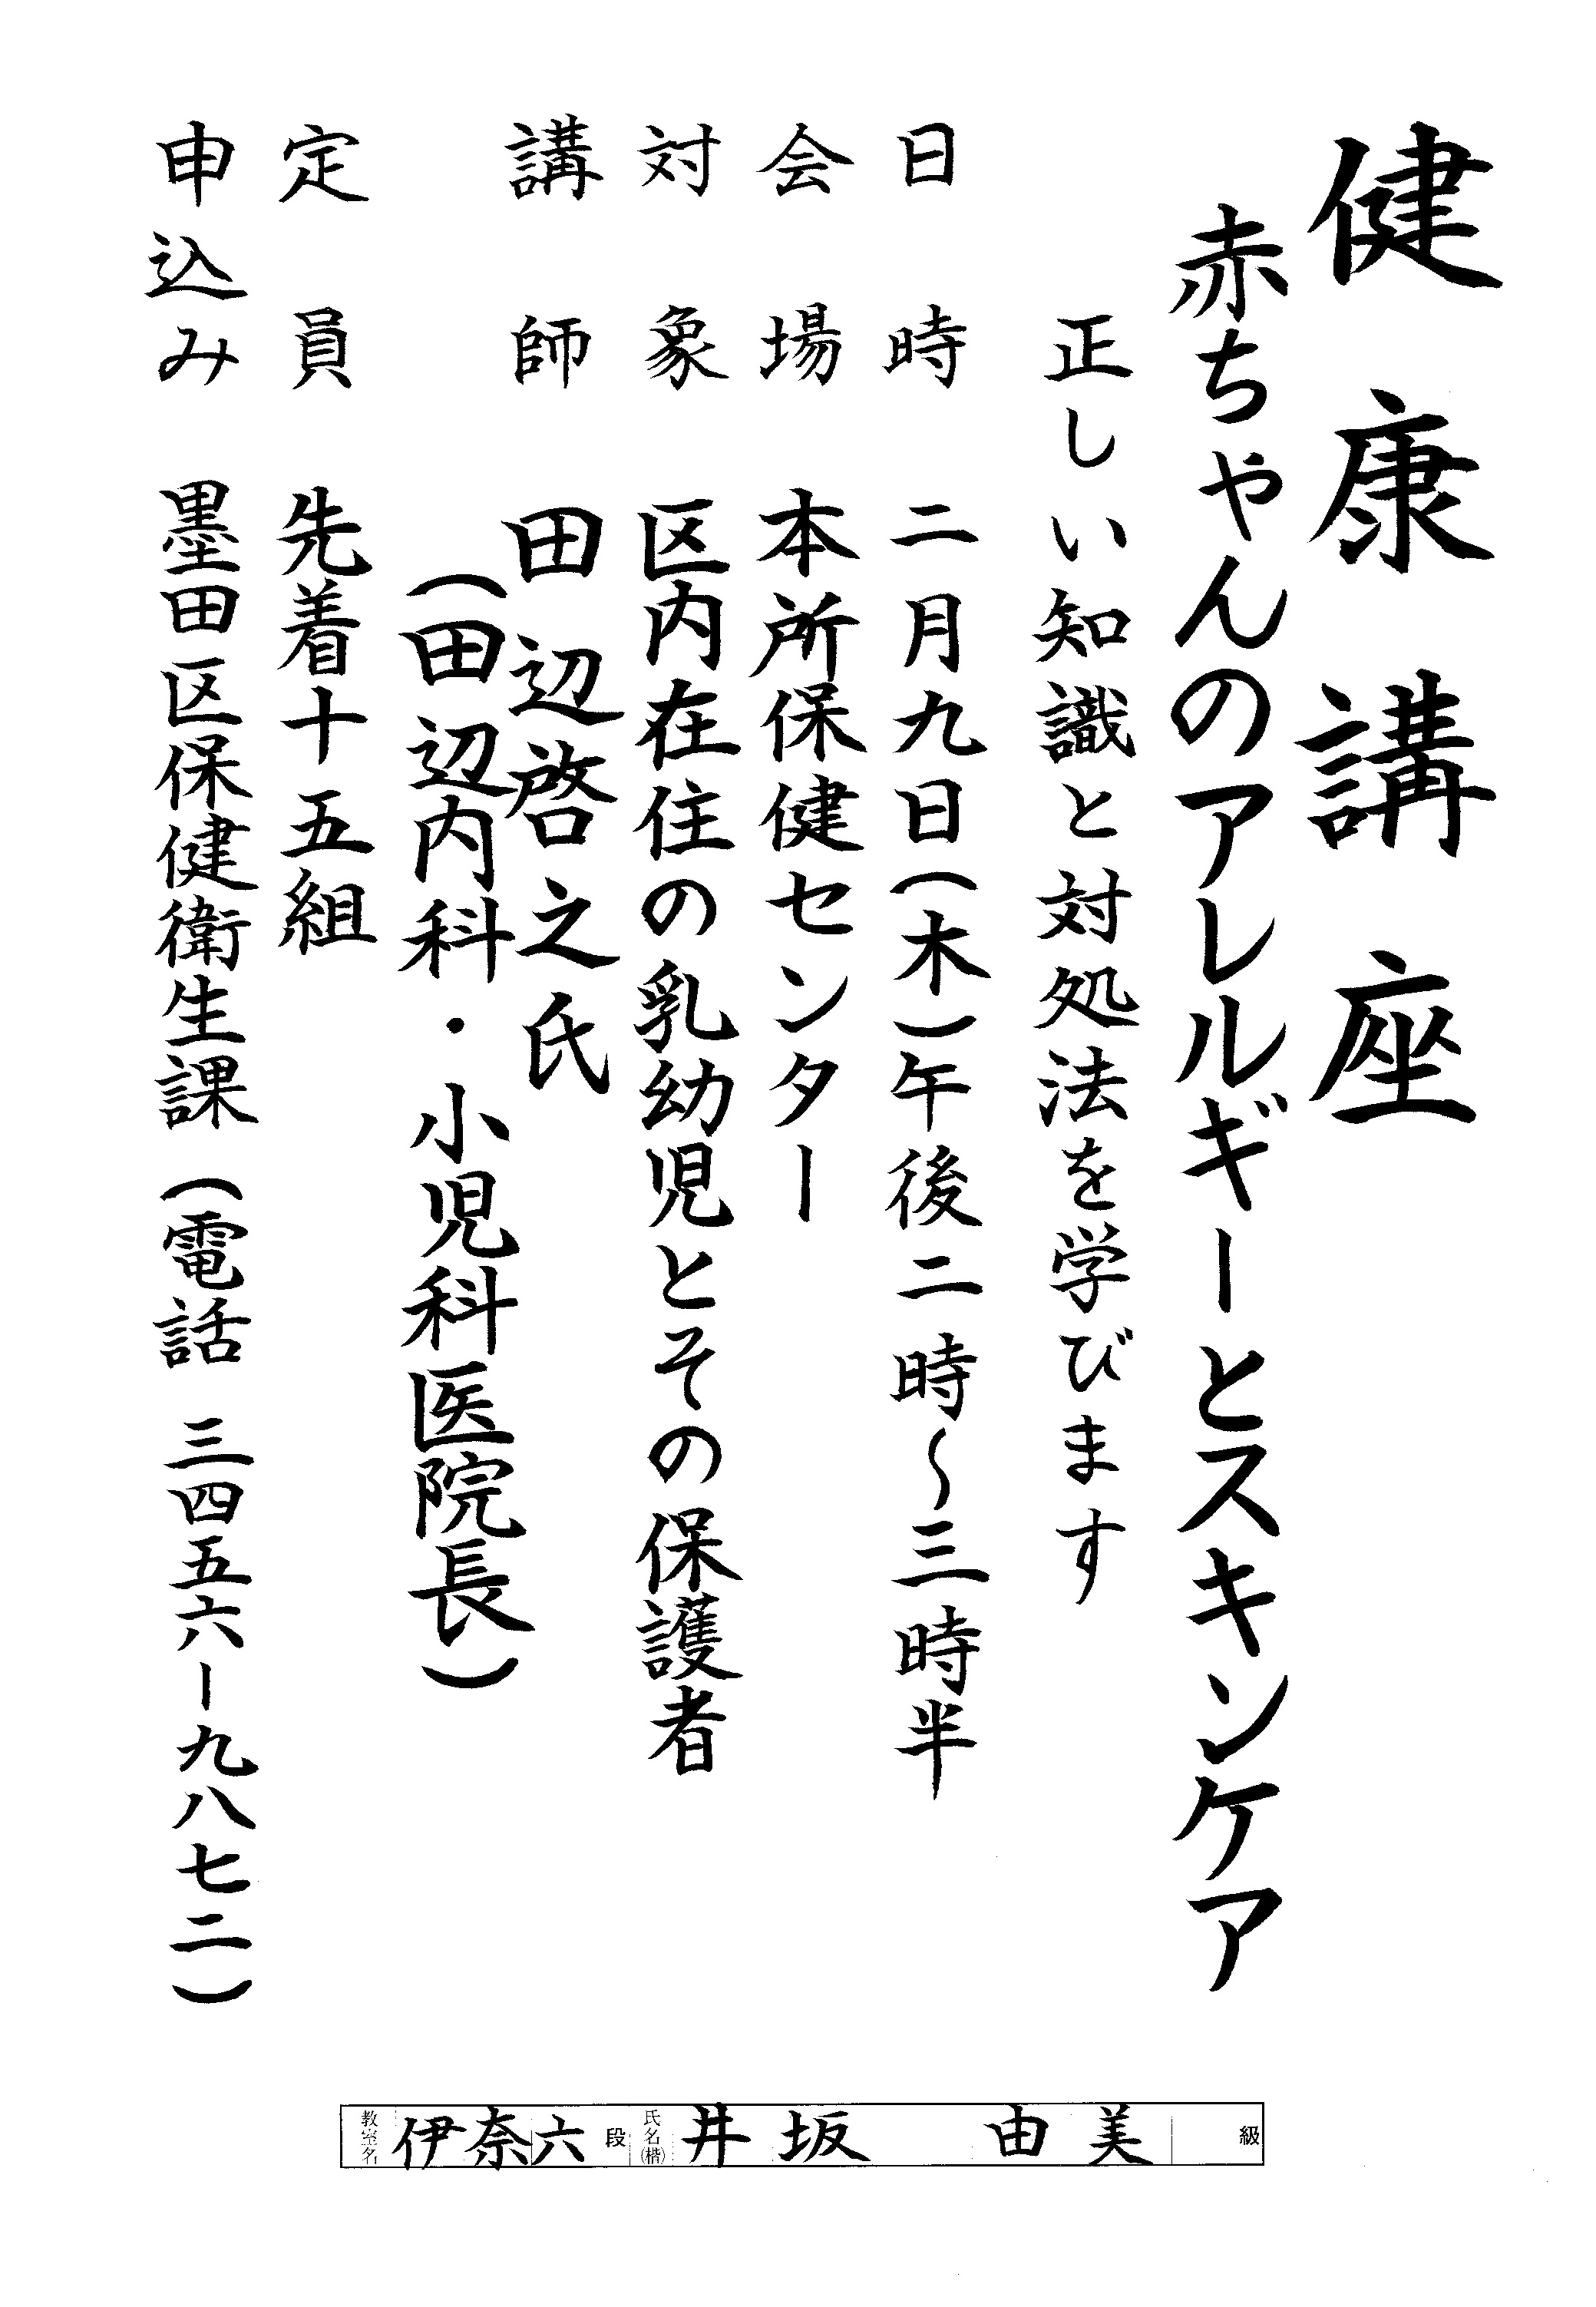 健康講座
赤ちゃんのアレルギーとスキンケア
正しい知識と対処法を学びます
日時 二月九日(木)午後二時～三時半
会場 本所保健センター
対象 区内在住の乳幼児とその保護者
講師 田辺啓之氏
(田辺内科・小児科医院長)
定員 先着十五組
申込み 墨田区保健衛生課(電話 三四五六ー九八七二)
教室名 伊奈 六段 氏名(楷) 井坂 由美 級